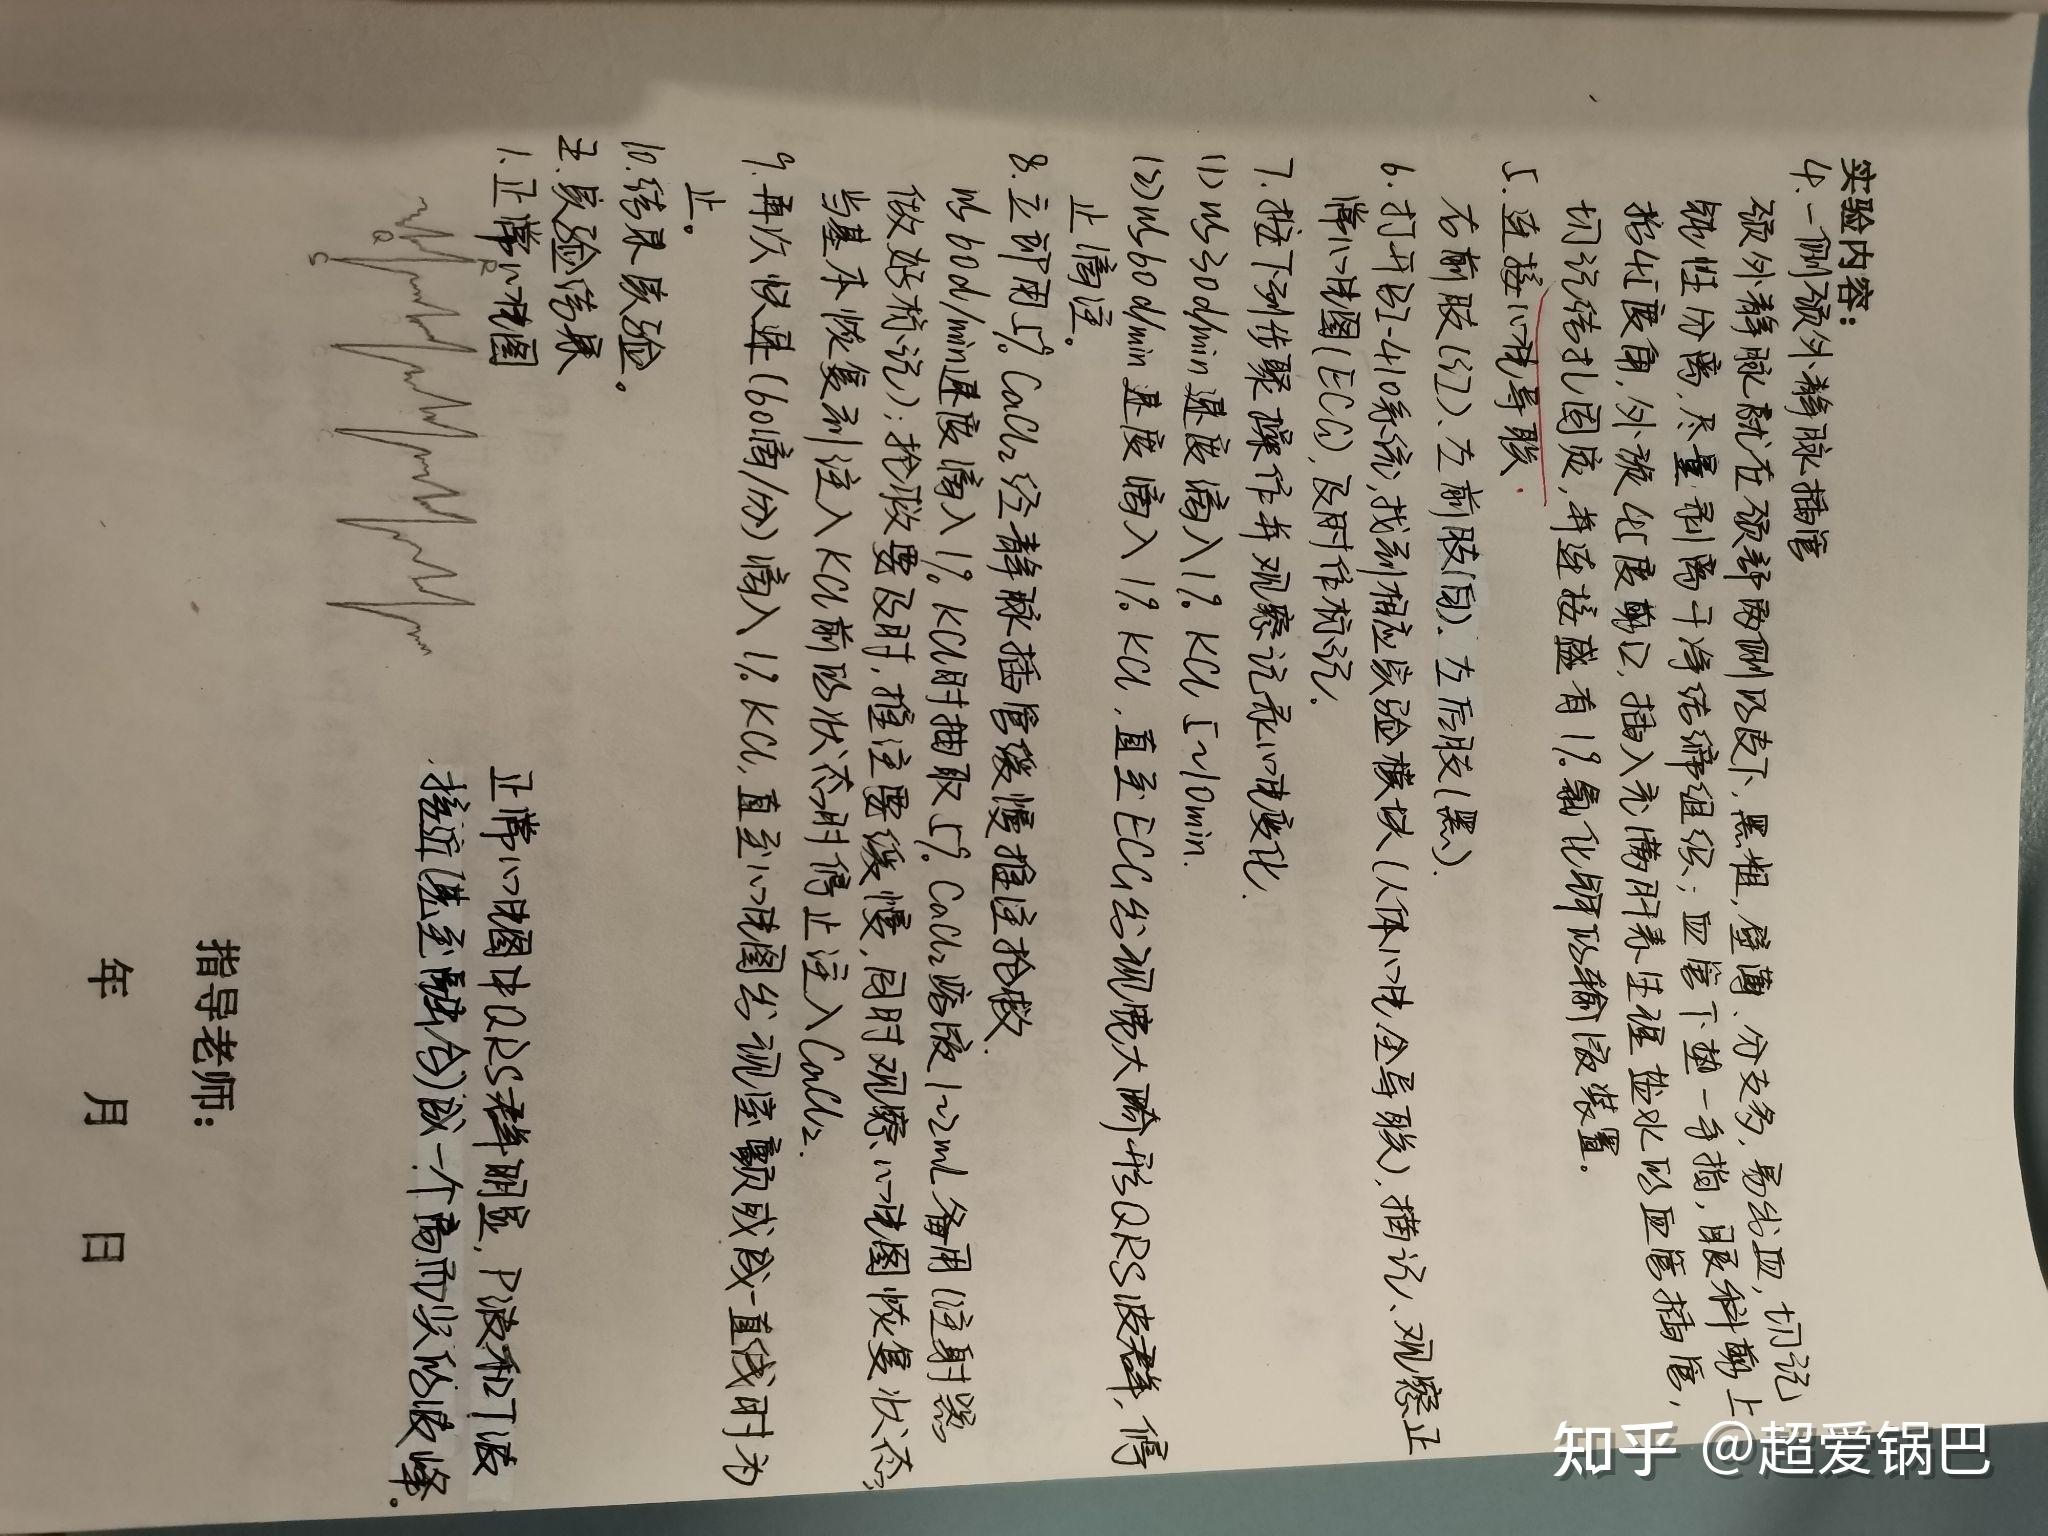 实验内容:
4. 一侧颈外静脉插管
颈外静脉就在颈部两侧皮下,黑粗,壁薄、分支多,易出血,切记
钝性分离,尽量剥离干净结缔组织;血管下垫一手指,眼科剪上
抬45度角,外旋45度剪口,插入充满肝素生理盐水的血管插管,
切记结扎固定,并连接盛有1%氯化钾的输液装置。
5. 连接心电导联.
右前肢(红)、左前肢(白)、左后肢(黑).
6. 打开BL-410系统,找到相应实验模块(人体心电全导联),描记、观察正
常心电图(ECG),及时作标记.
7. 按下列步骤操作并观察记录心电变化.
(1)以30d/min速度滴入1% KCl 5~10min.
(2)以60d/min速度滴入1% KCl,直至ECG出现宽大畸形QRS波群,停
止滴注。
8. 立即用5% CaCl₂经静脉插管缓慢推注抢救.
以60d/min速度滴入1% KCl时抽取5% CaCl₂溶液1~2mL备用(注射器
做好标记);抢救要及时,推注要缓慢,同时观察心电图恢复状态,
当基本恢复到注入KCl前的状态时停止注入CaCl₂.
9. 再次快速(60滴/分)滴入1% KCl,直至心电图出现室颤或成一直线时为
止。
10. 结束实验。
五. 实验结果
1. 正常心电图
R
Q
S
正常心电图中QRS群明显,P波和T波
接近甚至融合)成一个高而尖的波峰。
指导老师:
年 月 日
知乎 @超爱锅巴